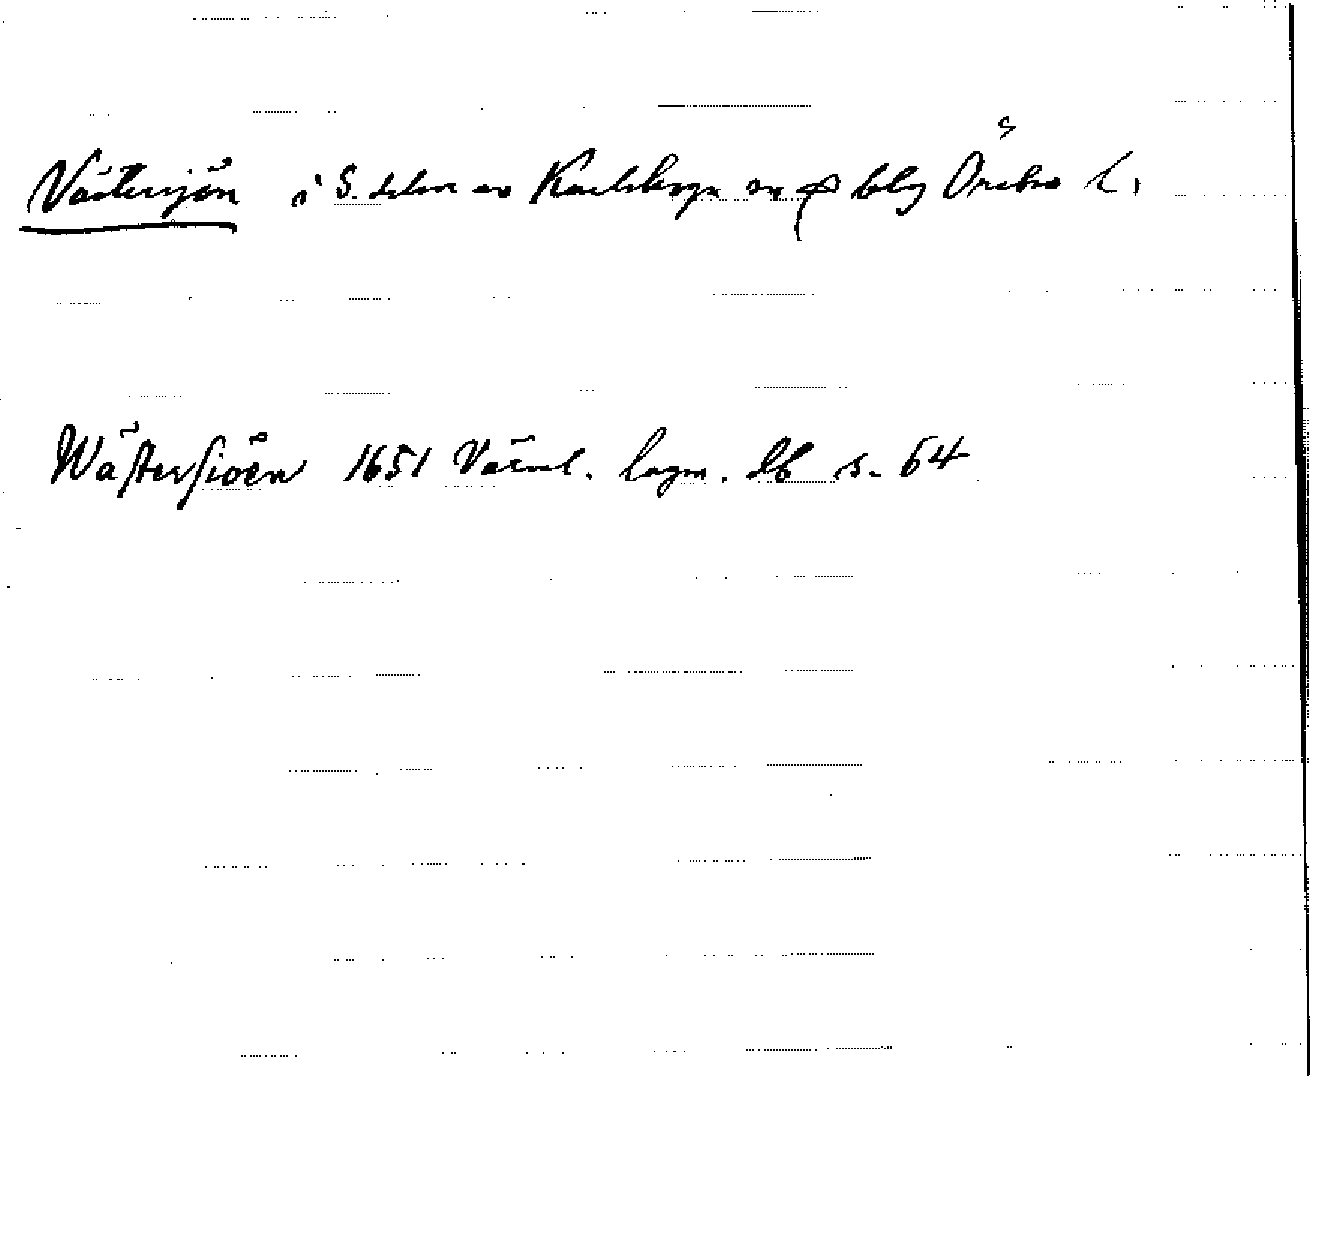 Västersjön i S. delen av Karlskoga sn på blg Örebro l.
Wästersioën 1651 Värml. lagm. db s. 64